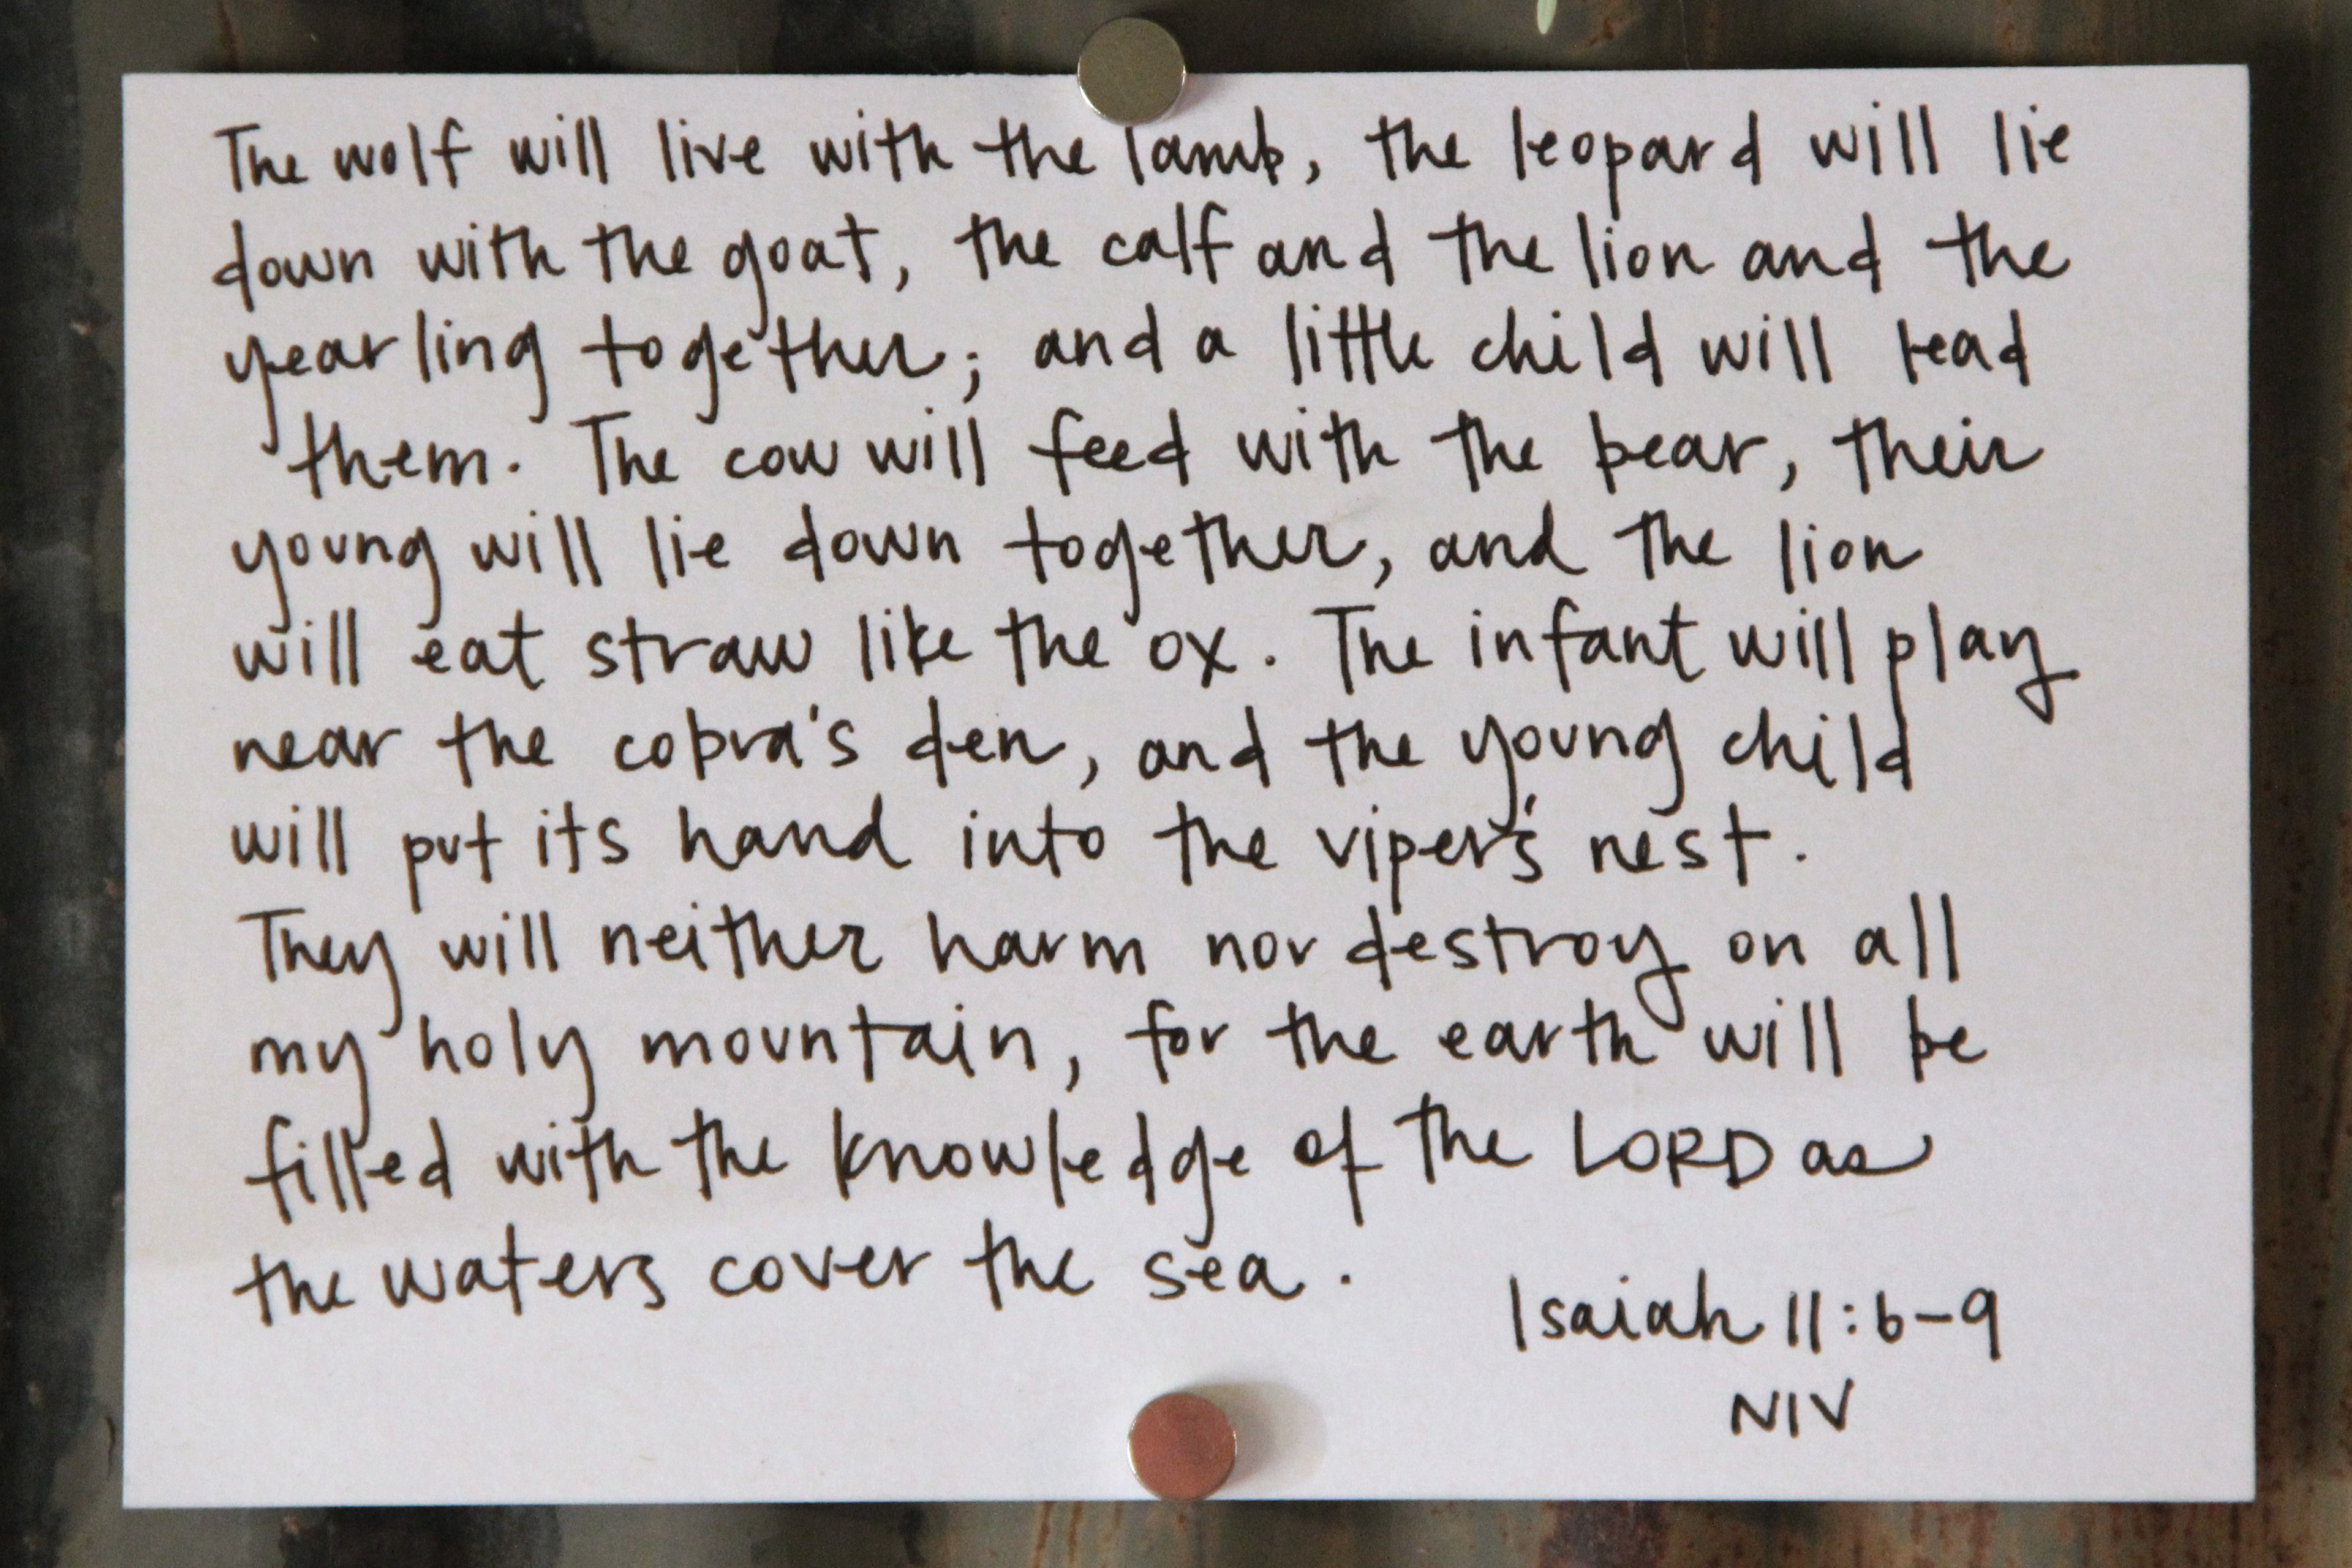 The wolf will live with the lamb, the leopard will lie
down with the goat, the calf and the lion and the
yearling together; and a little child will lead
them. The cow will feed with the bear, their
young will lie down together, and the lion
will eat straw like the ox. The infant will play
near the cobra's den, and the young child
will put its hand into the viper's nest.
They will neither harm nor destroy on all
my holy mountain, for the earth will be
filled with the knowledge of the LORD as
the waters cover the sea.
Isaiah 11:6-9
NIV